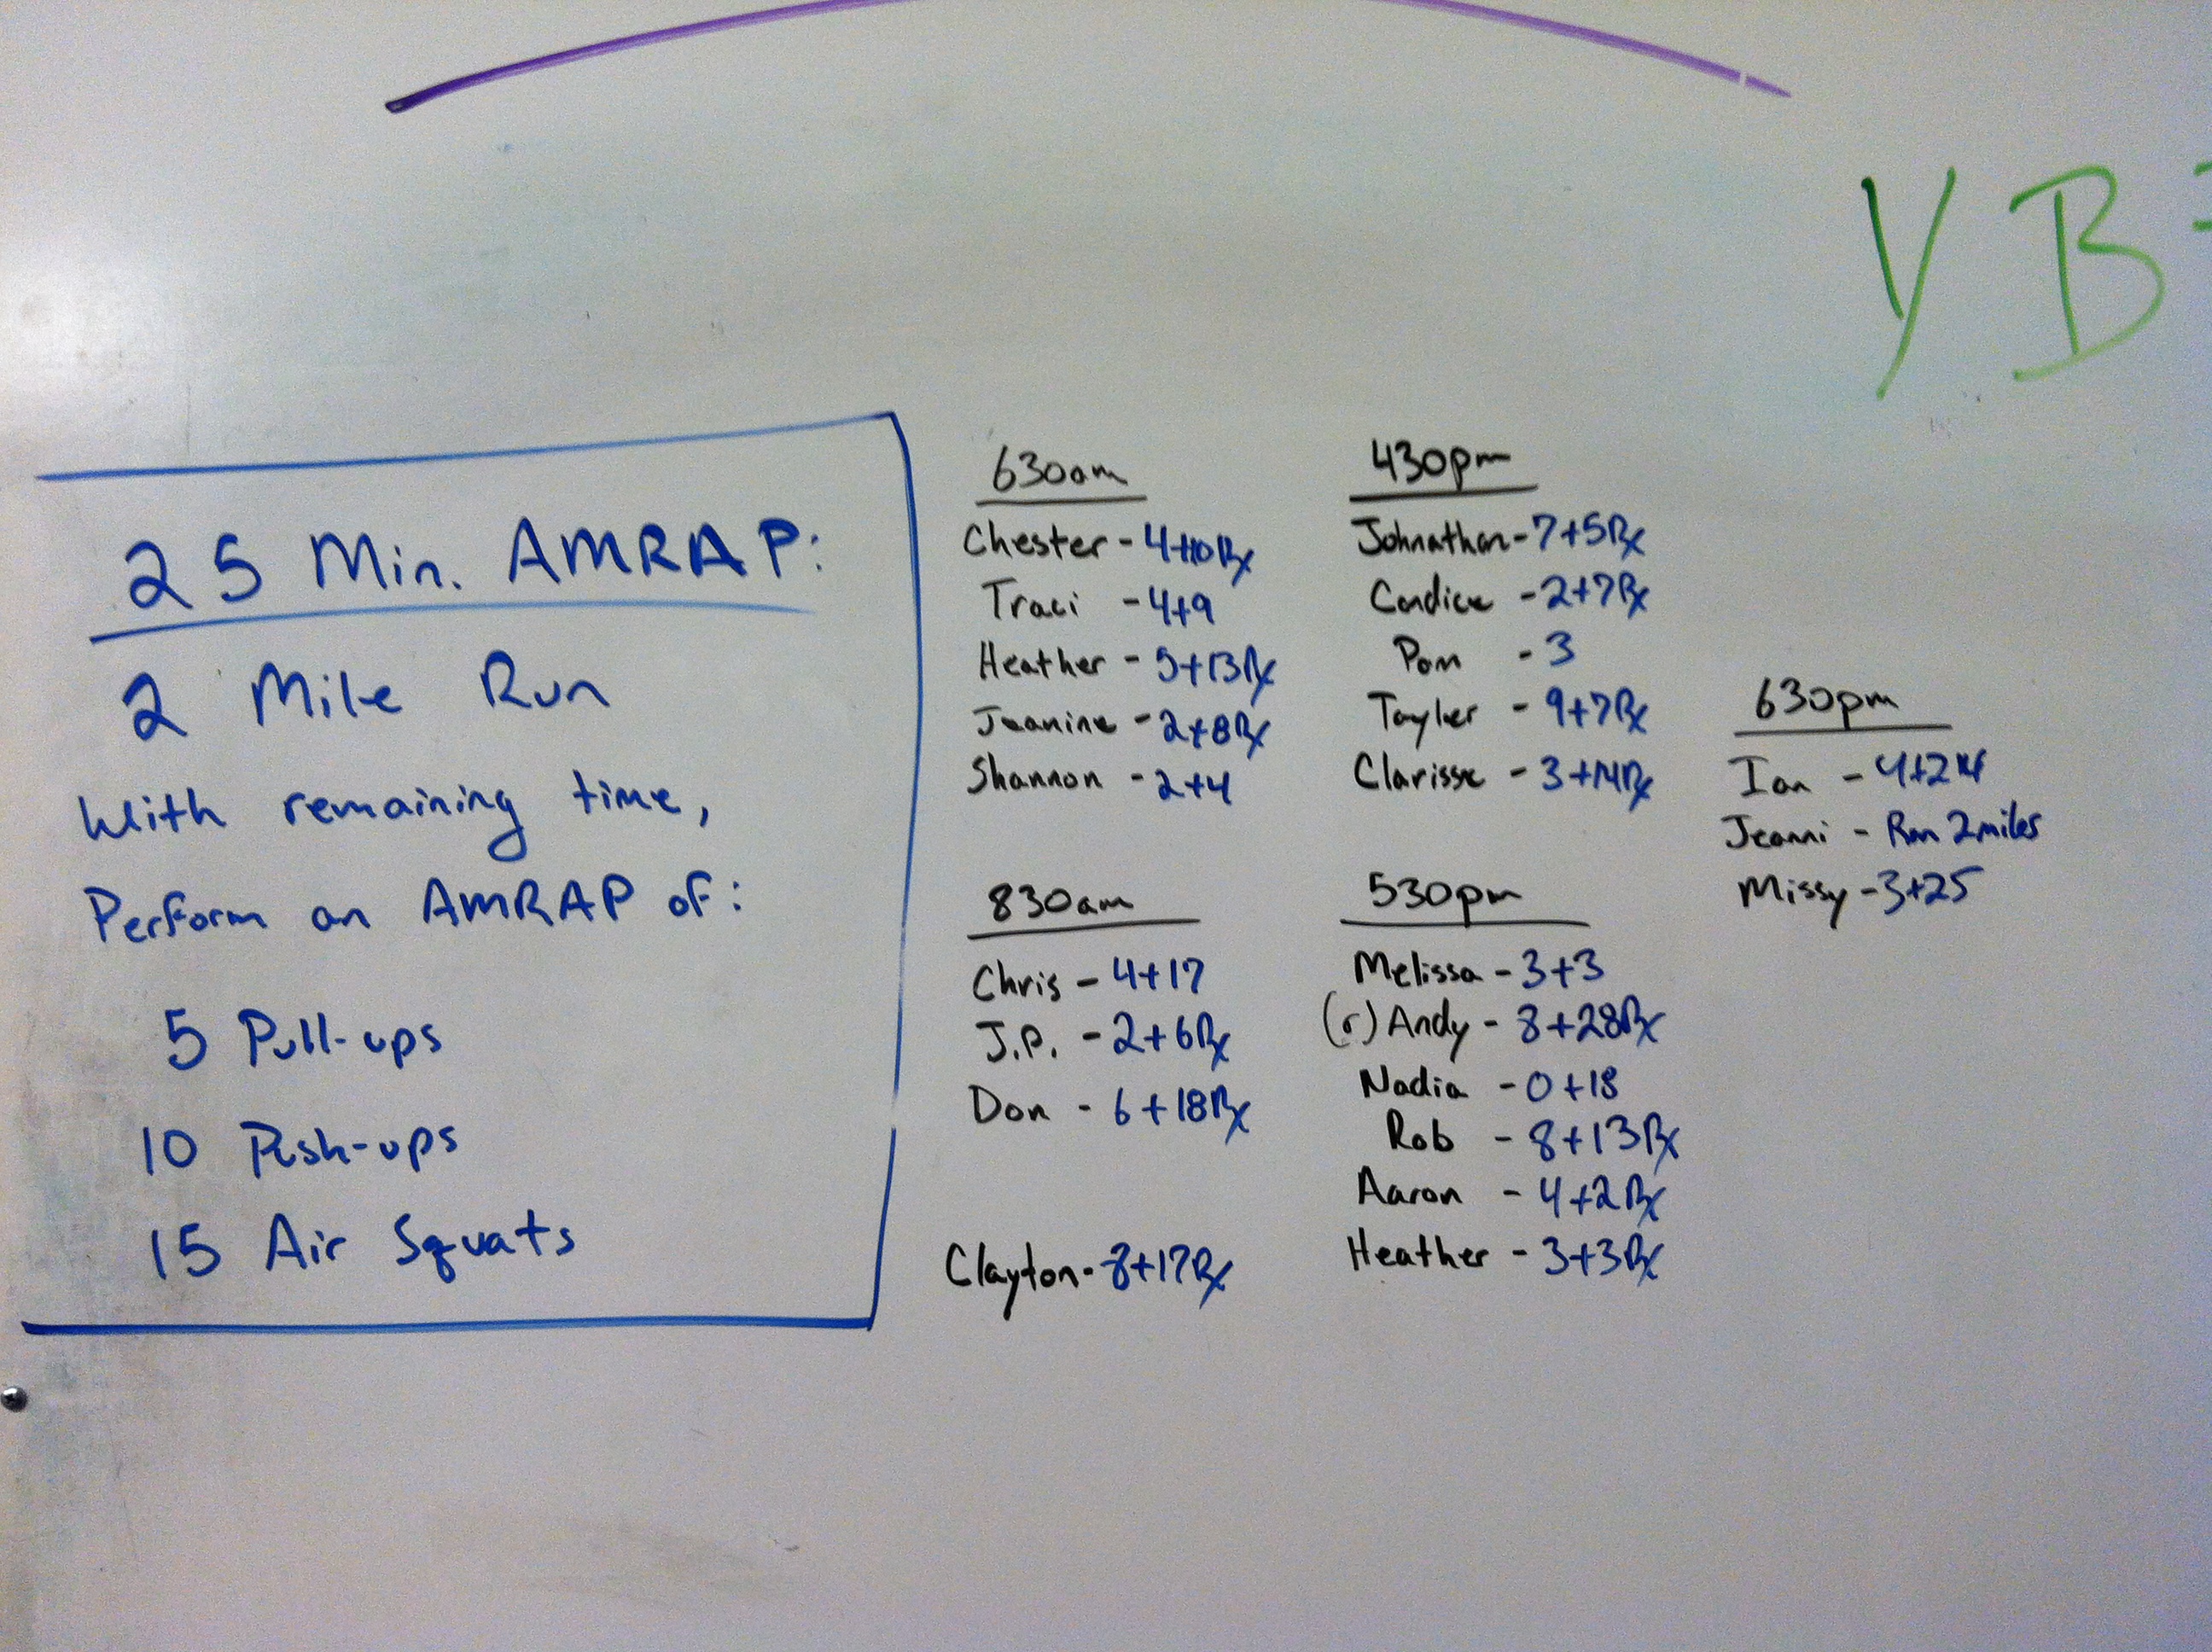 YB
25 Min. AMRAP:
2 Mile Run
With remaining time,
Perform an AMRAP of:
5 Pull-ups
10 Push-ups
15 Air Squats
630am
Chester - 4+10Rx
Traci - 4+9
Heather - 5+13Rx
Jeanine - 2+8Rx
Shannon - 2+4
830am
Chris - 4+17
J.P. - 2+6Rx
Don - 6+18Rx
Clayton - 8+17Rx
430pm
Johnathan - 7+5Rx
Candice - 2+7Rx
Pam - 3
Tayler - 9+7Rx
Clarisse - 3+14Rx
530pm
Melissa - 3+3
(r) Andy - 8+28Rx
Nadia - 0+18
Rob - 8+13Rx
Aaron - 4+2Rx
Heather - 3+3Rx
630pm
Ian -
Jeanni - Ran 2miles
Missy - 3+25